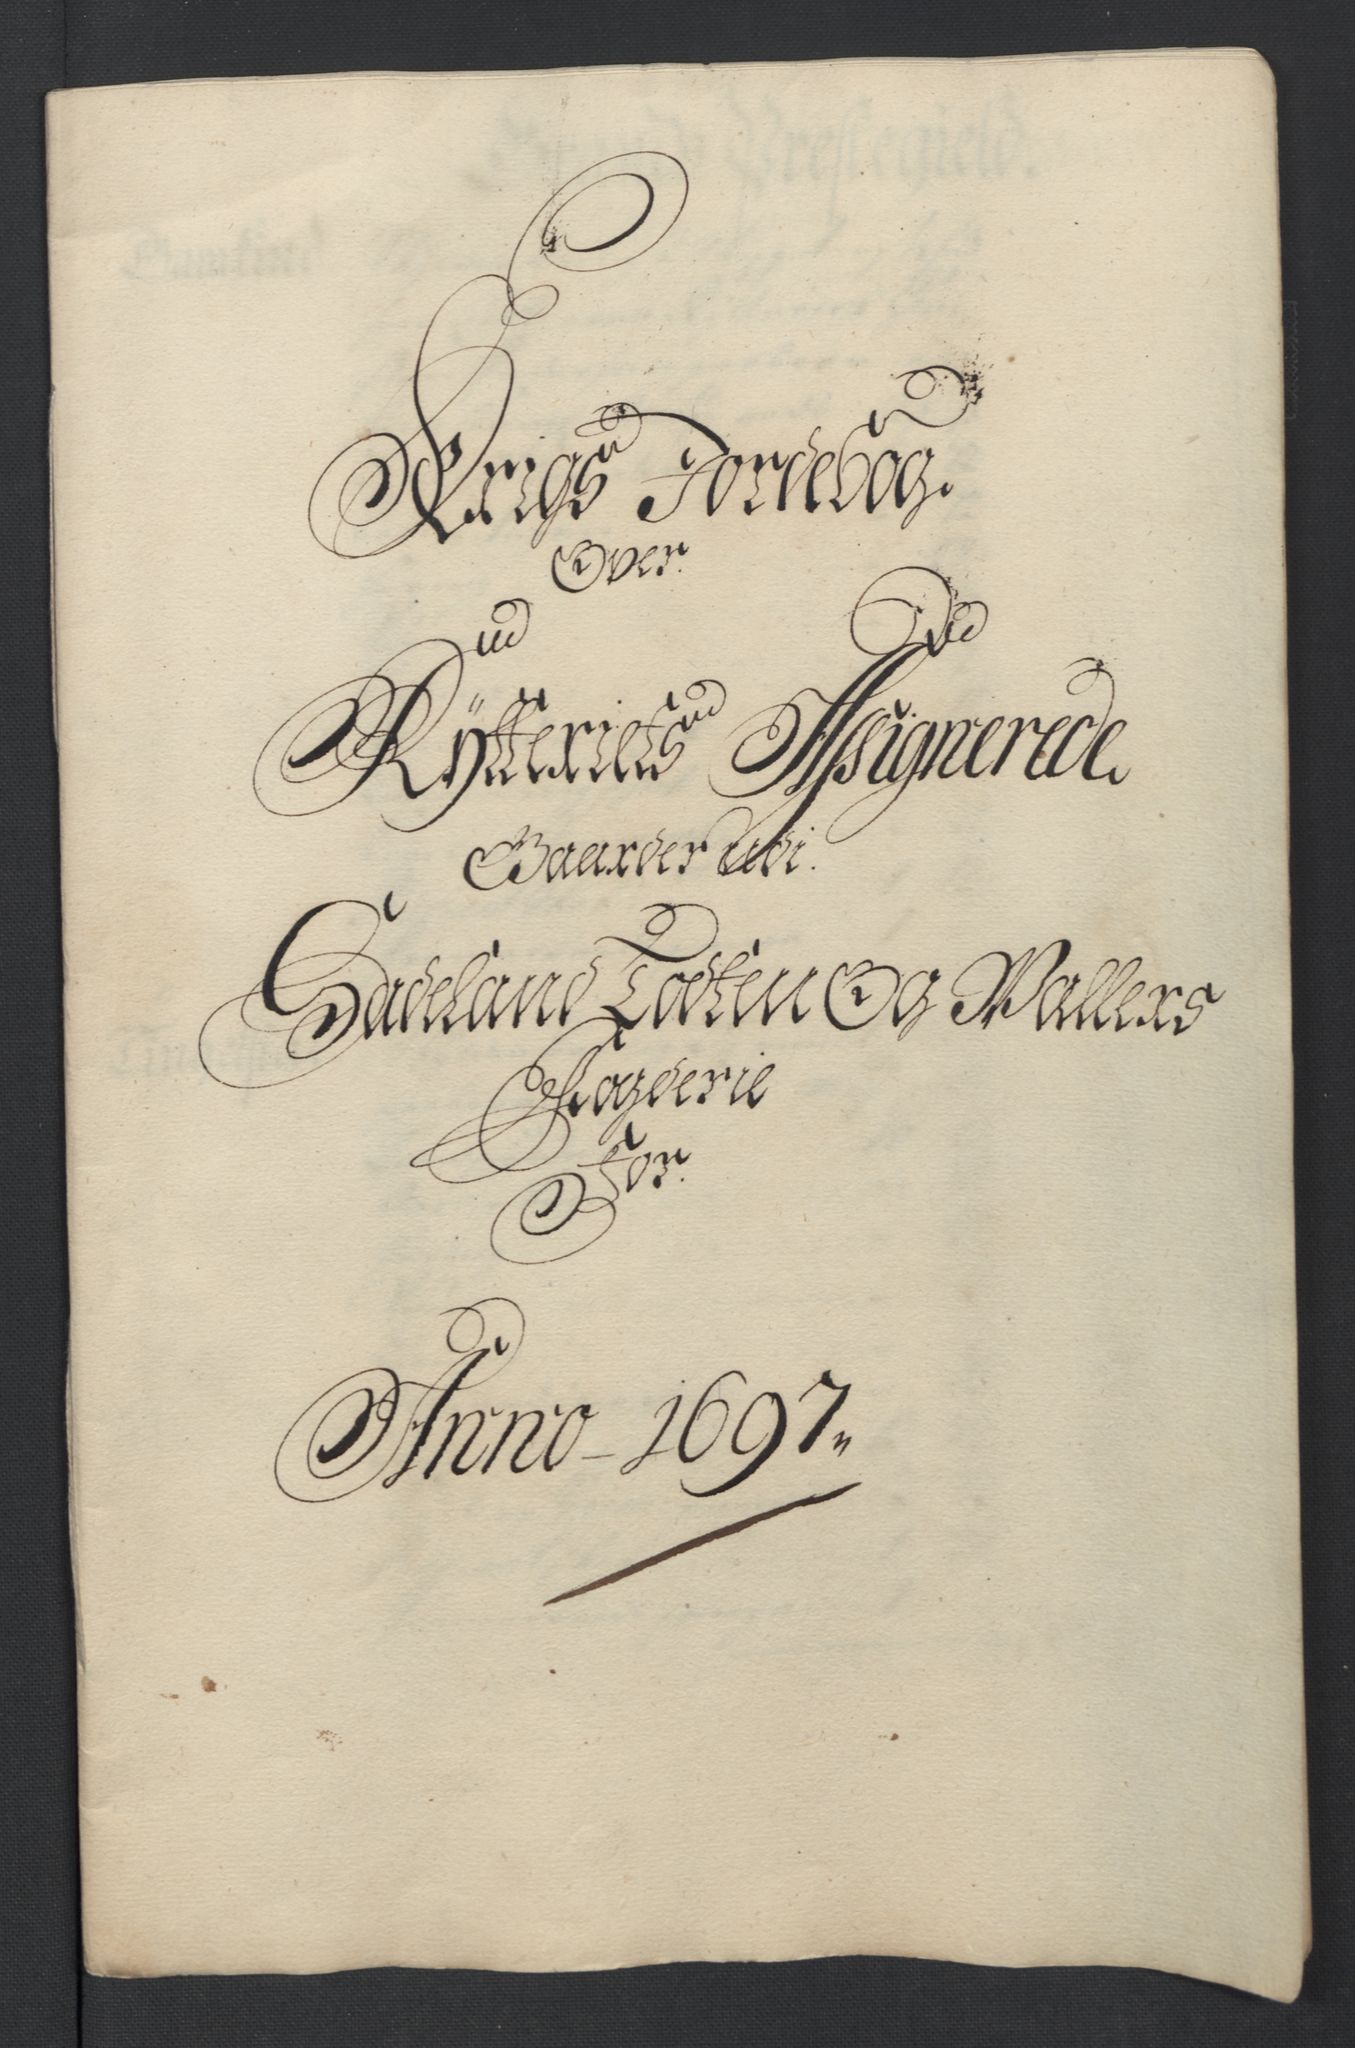 Krigs Jordebog.
Over.
Rÿtteriets Assignerede.
Gaarder udi.
Hadeland Toten Og Wallers
Fogderie
For.
Anno - 1697 „